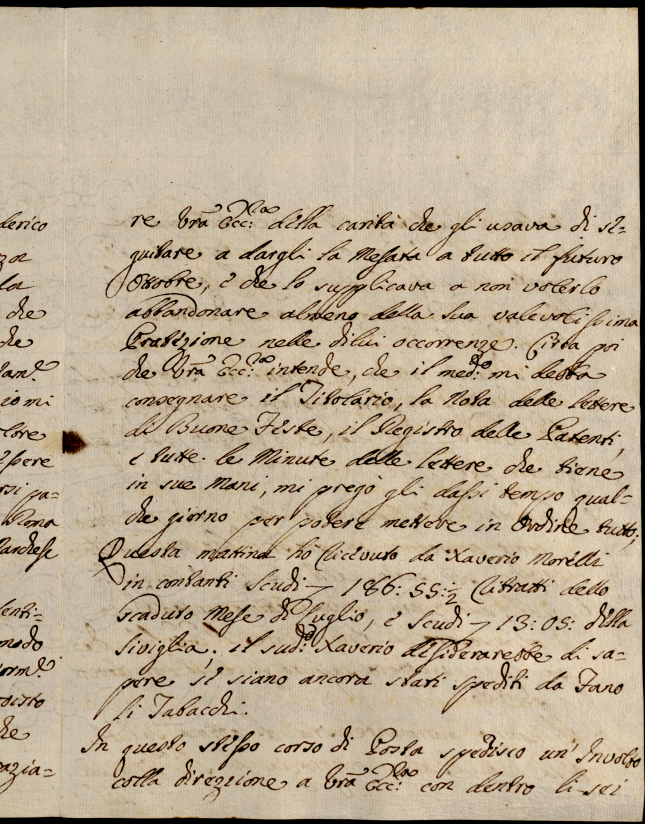 derico
zza
la
che
che
tant.e
io mi
lore
essere
rsi pa=
Roma
Marchese
enti=
modo
form.e
che
azia=
re Vrã Ecc:za della carità che gli usava di se=
guitare a dargli la Mesata a tutto il futuro
Ottobre, e che lo supplicava a non volerlo
abbandonare almeno della sua valevolissima
Protezione nelle dilui occorrenze. Circa poi
che Vrã Ecc:za intende, che il med:o mi debba
consegnare il Titolario, la Nota delle lettere
di Buone Feste, il Registro delle Patenti,
e tutte le Minute delle lettere che tiene
in sue Mani, mi pregò gli dassi tempo qual=
che giorno per potere mettere in Ordine tutto;
Questa mattina hò ricevuto da Xaverio Morelli
in contanti Scudi – 186: 55:½ ritratti dello
scaduto Mese di Luglio, e Scudi – 13: 05: della
Siviglia; il sud:o Xaverio desiderarebbe di sa=
pere se siano ancora stati spediti da Fano
li Tabacchi.
In questo stesso corso di Posta spedisco un' Involto
colla direzione a Vrã Ecc:za con dentro li sei